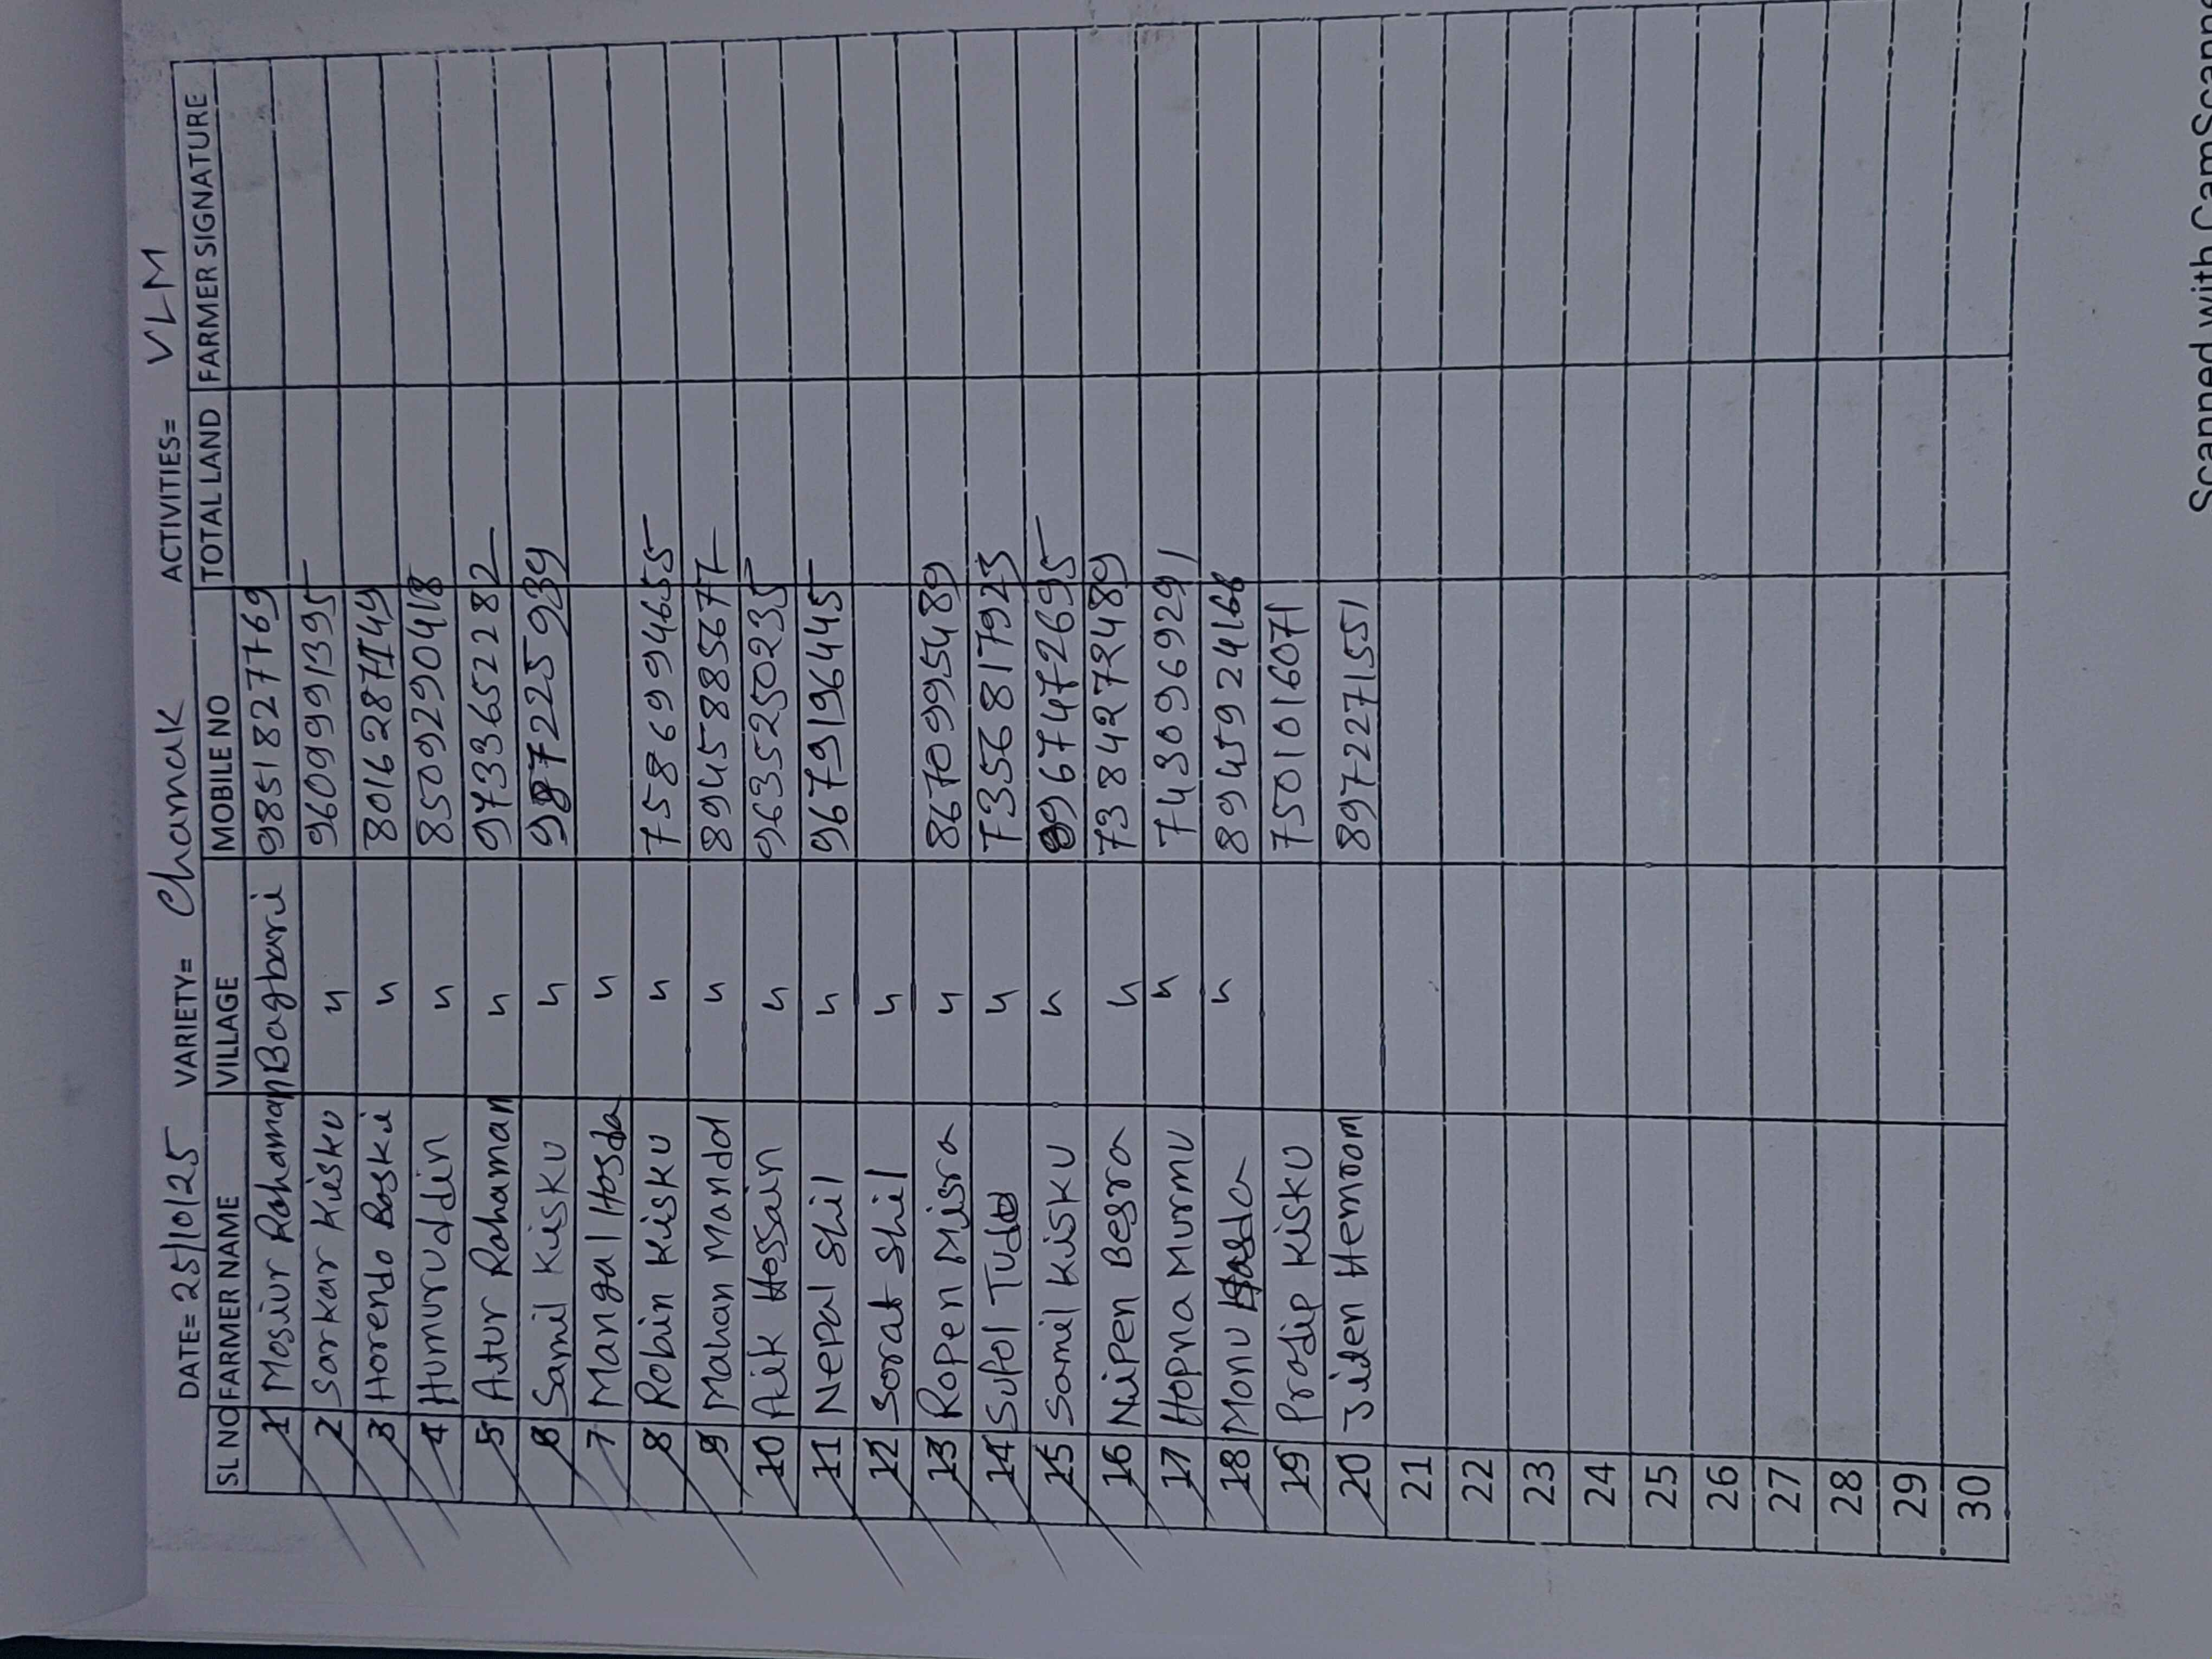 DATE= 25/10/25 VARIETY= Chamak ACTIVITIES= VLM
SL NO FARMER NAME VILLAGE MOBILE NO TOTAL LAND FARMER SIGNATURE
1 Mosiur Rahaman Bagbari 9851827769
2 Sarkar Kisku " 9609991395
3 Horendo Baski " 8016287749
4 Humuruddin " 8509290418
5 Atur Rahaman " 9733652282
6 Samil Kisku " 987225939
7 Mangal Hosda "
8 Robin Kisku " 7586994655
9 Mahan Mandol " 8945885677
10 Aik Hossain " 9635250235
11 Nepal Shil " 9679196445
12 Sorat Shil "
13 Ropen Misra " 8670995489
14 Sufol Tudo " 7356817923
15 Somil Kisku " 967472695
16 Nipen Besra " 7384272489
17 Hopna Murmu " 7430969291
18 Monu Hasda " 8945924166
19 Prodip Kisku 7501016071
20 Jiden Hemrom 8972271551
21
22
23
24
25
26
27
28
29
30
Scanned with CamScanne